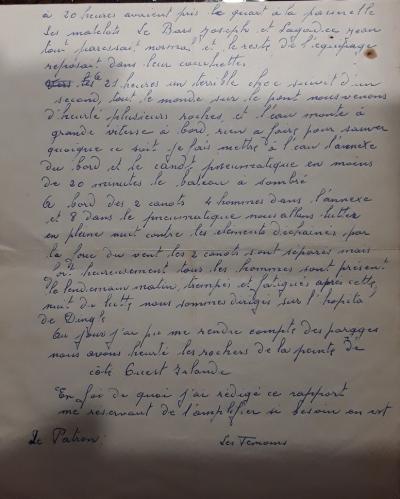 à 20 heures avaient pris le quart à la passerelle
Les matelots Le Bars Joseph et Lagadic Jean
tout paraissait normal et le reste de l'équipage
reposait dans leur couchettes
les 21 heures un terrible choc suivit d'un
second, tout le monde sur le pont nous venons
d'heurté plusieurs roches, et l'eau monte à
grande vitesse à bord, rien a faire pour sauver
quoique ce soit, je fais mettre à l'eau l'annexe
du bord et le canot pneumatique en moins
de 20 minutes le bateau à sombré
A bord des 2 canots 4 hommes dans l'annexe
et 8 dans le pneumatique nous allons lutter
en pleine nuit contre les elements dechainés, par
la force du vent les 2 canots sont séparés mais
heureusement tous les hommes sont présent
le lendemain matin, trempés et fatigués après cette
nuit de lutte nous sommes dirigés sur l'hopital
de Dingle
Au jour j'ai pu me rendre compte des parages
nous avons heurté les rochers de la pointe de
côte Ouest Irlande
En foi de quoi j'ai rédigé ce rapport
me réservant de l'amplifier si besoin en est
Le Patron:
Les Temoins